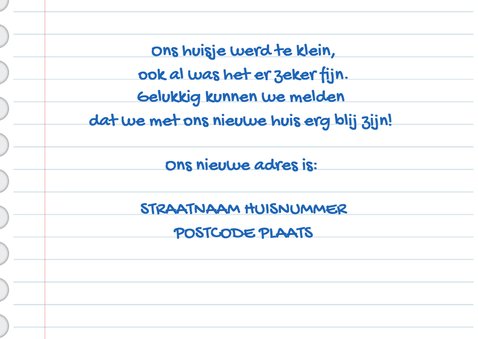 Ons huisje werd te klein,
ook al was het er zeker fijn.
Gelukkig kunnen we melden
dat we met ons nieuwe huis erg blij zijn!
Ons nieuwe adres is:
STRAATNAAM HUISNUMMER
POSTCODE PLAATS